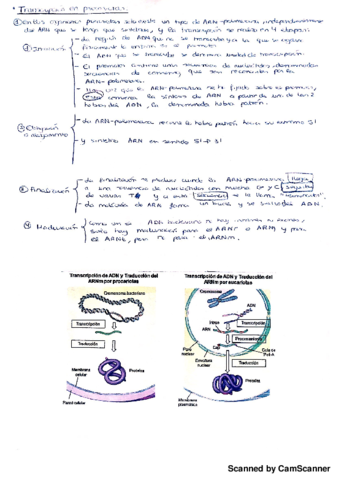 * Transcripción en procariotas:
En los organismos procariotas solamente un tipo de ARN-polimerasa, independientemente
de ARN que se tenga que sintetizar, y la transcripción se realiza en 4 etapas:
① Iniciación
- La región de ADN que no se transcribe y la que se
previamente el promotor.
- El ARN que se transcribe se denomina unidad de transcripción.
- El promotor contiene una secuencia de nucleótidos, denominadas
secuencias de consenso, que son reconocidas por la
ARN-polimerasa.
- Una vez que la ARN-polimerasa se ha fijado sobre el promotor,
comienza la síntesis de ARN a partir de una de las 2
hebras del ADN, la denominada hebra patrón.
② Elongación o alargamiento
- La ARN-polimerasa recorre la hebra patrón hacia su extremo 5'
y sintetiza ARN en sentido 5' → 3'
③ Finalización
- La finalización se produce cuando la ARN-polimerasa llega
a una secuencia de nucleótidos con mucha G y C seguida
de varias T y a esta secuencia se le llama
- La molécula de ARN forma un bucle y se separa del ADN.
④ Maduración
- Como en el ADN bacteriano no hay intrones ni exones,
solo hay maduración para el ARNT o ARNr y
el ARNt, pero no para el ARNm.
Transcripción de ADN y Traducción del
ARNm por procariotas
Cromosoma bacteriano
Transcripción
Traducción
Membrana
celular
Proteínas
Pared celular
Transcripción de ADN y Traducción del
ARNm por eucariotas
Cromosoma
ADN
Transcripción
ARN
Procesamiento
Cap
Cola de
Poli-A
Poro
nuclear
Envoltura
nuclear
Traducción
Proteínas
Membrana
plasmática
Scanned by CamScanner